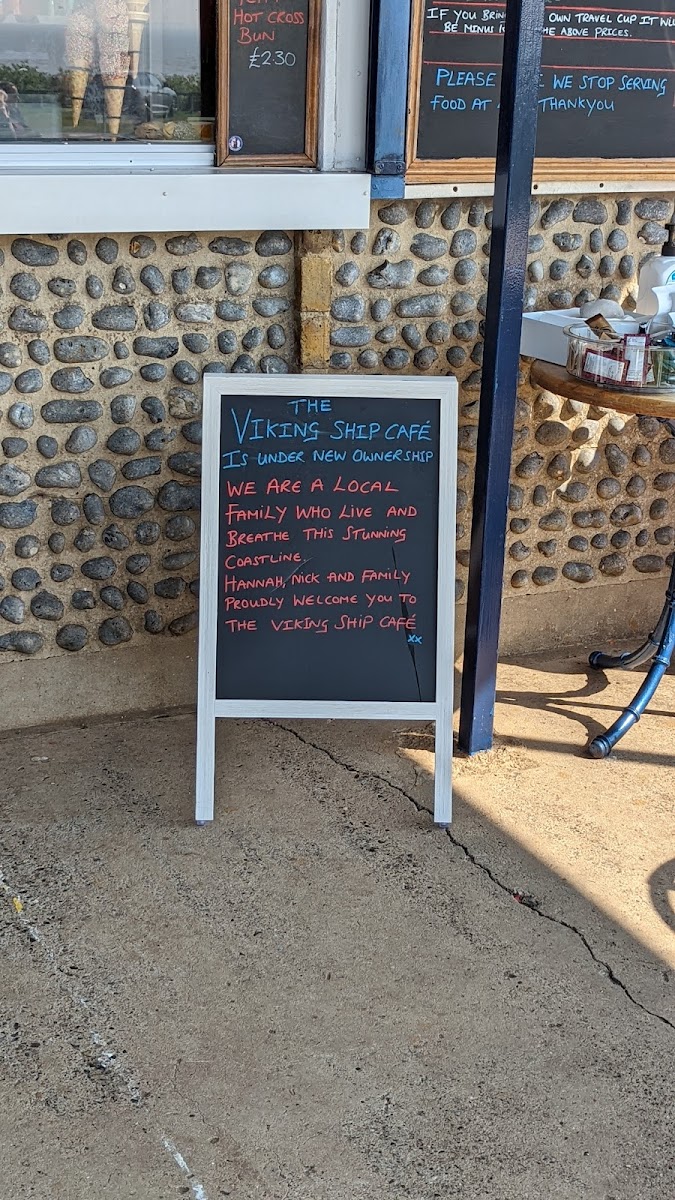 HOT CROSS
BUN
£2.30
IF YOU BRIN OWN TRAVEL CUP IT WILL
BE MINUS THE ABOVE PRICES.
PLEASE WE STOP SERVING
FOOD AT THANKYOU
THE
VIKING SHIP CAFÉ
IS UNDER NEW OWNERSHIP
WE ARE A LOCAL
FAMILY WHO LIVE AND
BREATHE THIS STUNNING
COASTLINE.
HANNAH, NICK AND FAMILY
PROUDLY WELCOME YOU TO
THE VIKING SHIP CAFÉ
xx